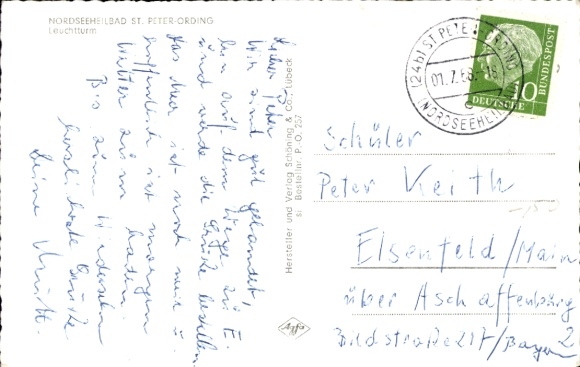 NORDSEEHEILBAD ST. PETER-ORDING
Leuchtturm
Lieber Peter
Wir sind gut gelandet,
bin auf dem Wege zu F.
und werde die Grüße bestellen
das Meer ist noch weit u.
hoffentlich ist morgen
Wetter zum baden.
Bis zum Wiedersehn
herzliche Grüße
Deine
Hersteller und Verlag Schöning & Co., Lübeck
si Bestellnr. P.O. 257
Agfa
(24b) ST PETER-ORDING
01.7.
NORDSEEHEIL
10
DEUTSCHE
BUNDESPOST
Schüler
Peter Keith
Elsenfeld/Main
über Aschaffenburg
Bildstraße 217/Bayern
2